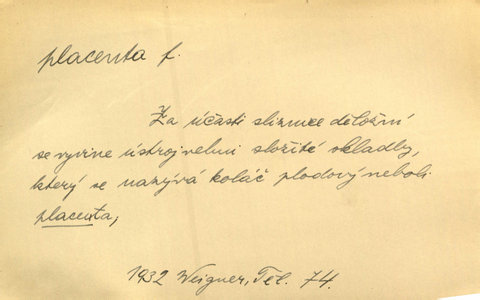 placenta f.
Za účasti sliznice děložní
se vyvine ústroj velmi složité skladby,
který se nazývá koláč plodový neboli
placenta,
1932 Weigner, Těl. 74.